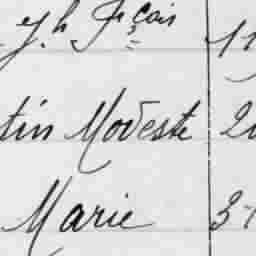 Jh Fçois 11
tin Modeste 2
Marie 3